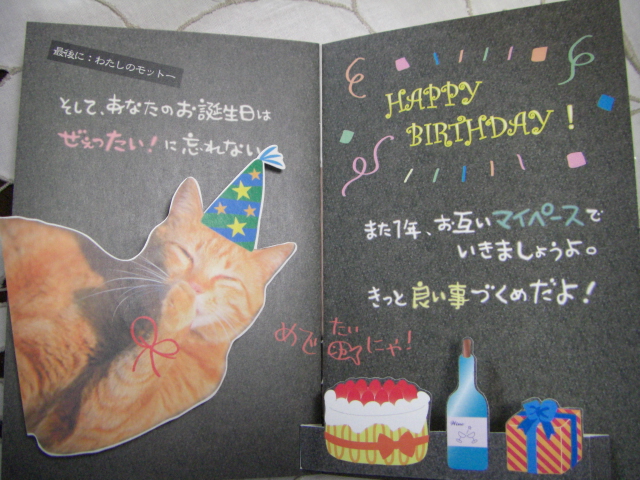 最後に：わたしのモットー
そして、あなたのお誕生日は
ぜぇったい！に忘れない
HAPPY
BIRTHDAY!
また1年、お互いマイペースで
いきましょうよ。
きっと良い事づくめだよ！